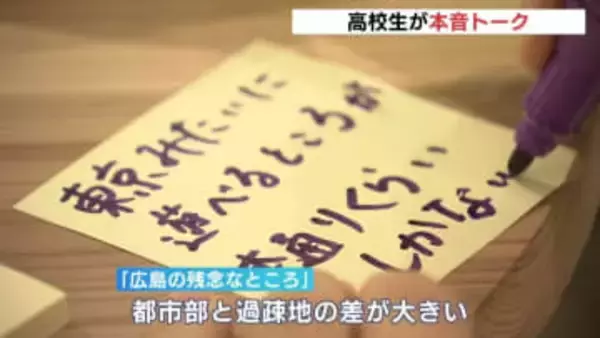 高校生が本音トーク
東京みたいに
遊べるところが
本通りくらい
しかない
「広島の残念なところ」
都市部と過疎地の差が大きい